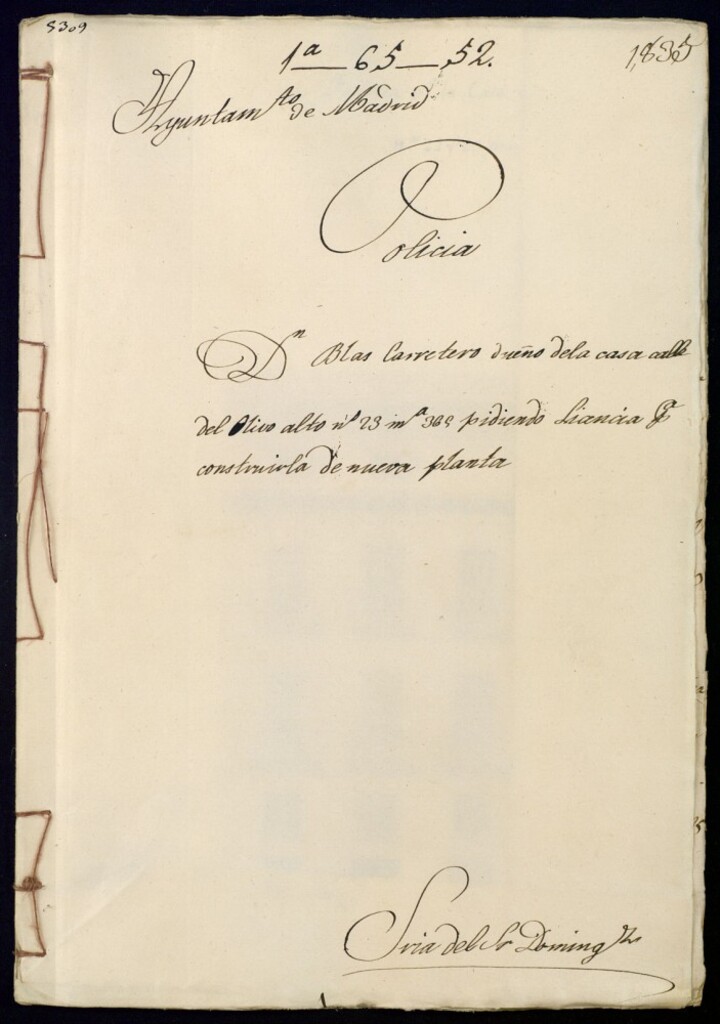 5309
1ª — 65 — 52.
1,835
Ayuntamto de Madrid
Policia
Dn Blas Carretero dueño dela casa calle
del Olivo alto nº 23 mª 365 pidiendo Licencia pª
construirla de nueva planta
Sria del Sr Domingz